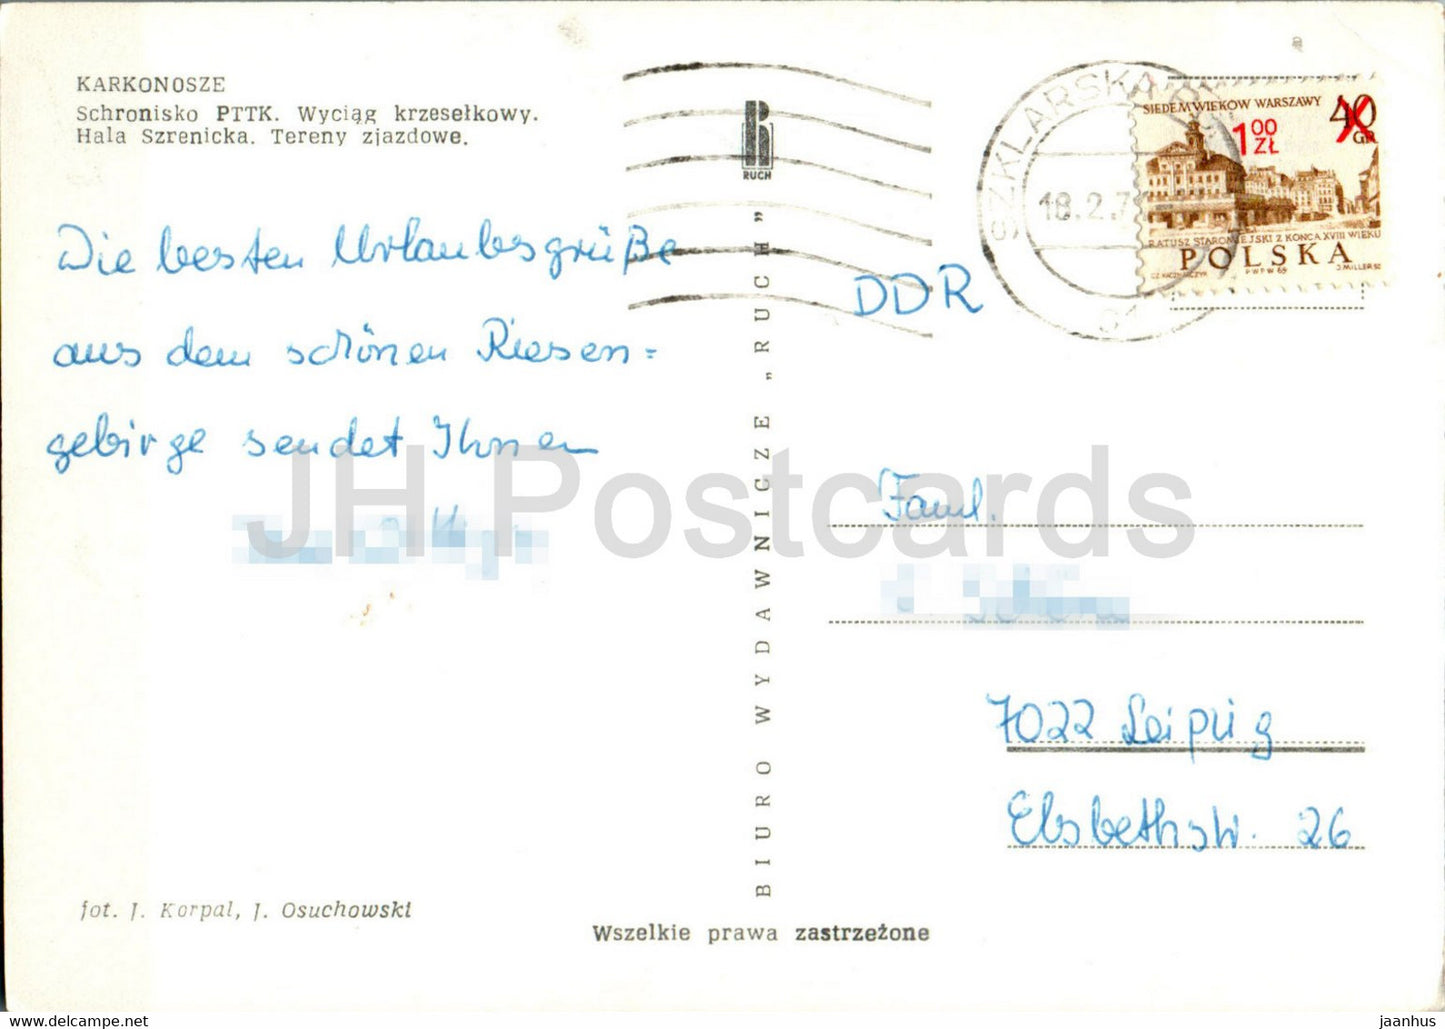 KARKONOSZE
Schronisko PTTK. Wyciąg krzesełkowy.
Hala Szrenicka. Tereny zjazdowe.
RUCH
SZKLARSKA
18.2.7
SIEDEM WIEKÓW WARSZAWY
40 GR
1 00 ZŁ
RATUSZ STAROMIEJSKI Z KOŃCA XVIII WIEKU
POLSKA
PWPW 69
J. MILLER SC
Die besten Urlaubsgrüße
aus dem schönen Riesen=
gebirge sendet Ihnen
DDR
Faml.
7022 Leipzig
Elsbethstr. 26
BIURO WYDAWNICZE „RUCH”
fot. J. Korpal, J. Osuchowski
Wszelkie prawa zastrzeżone
JH Postcards
www.delcampe.net
jaanhus